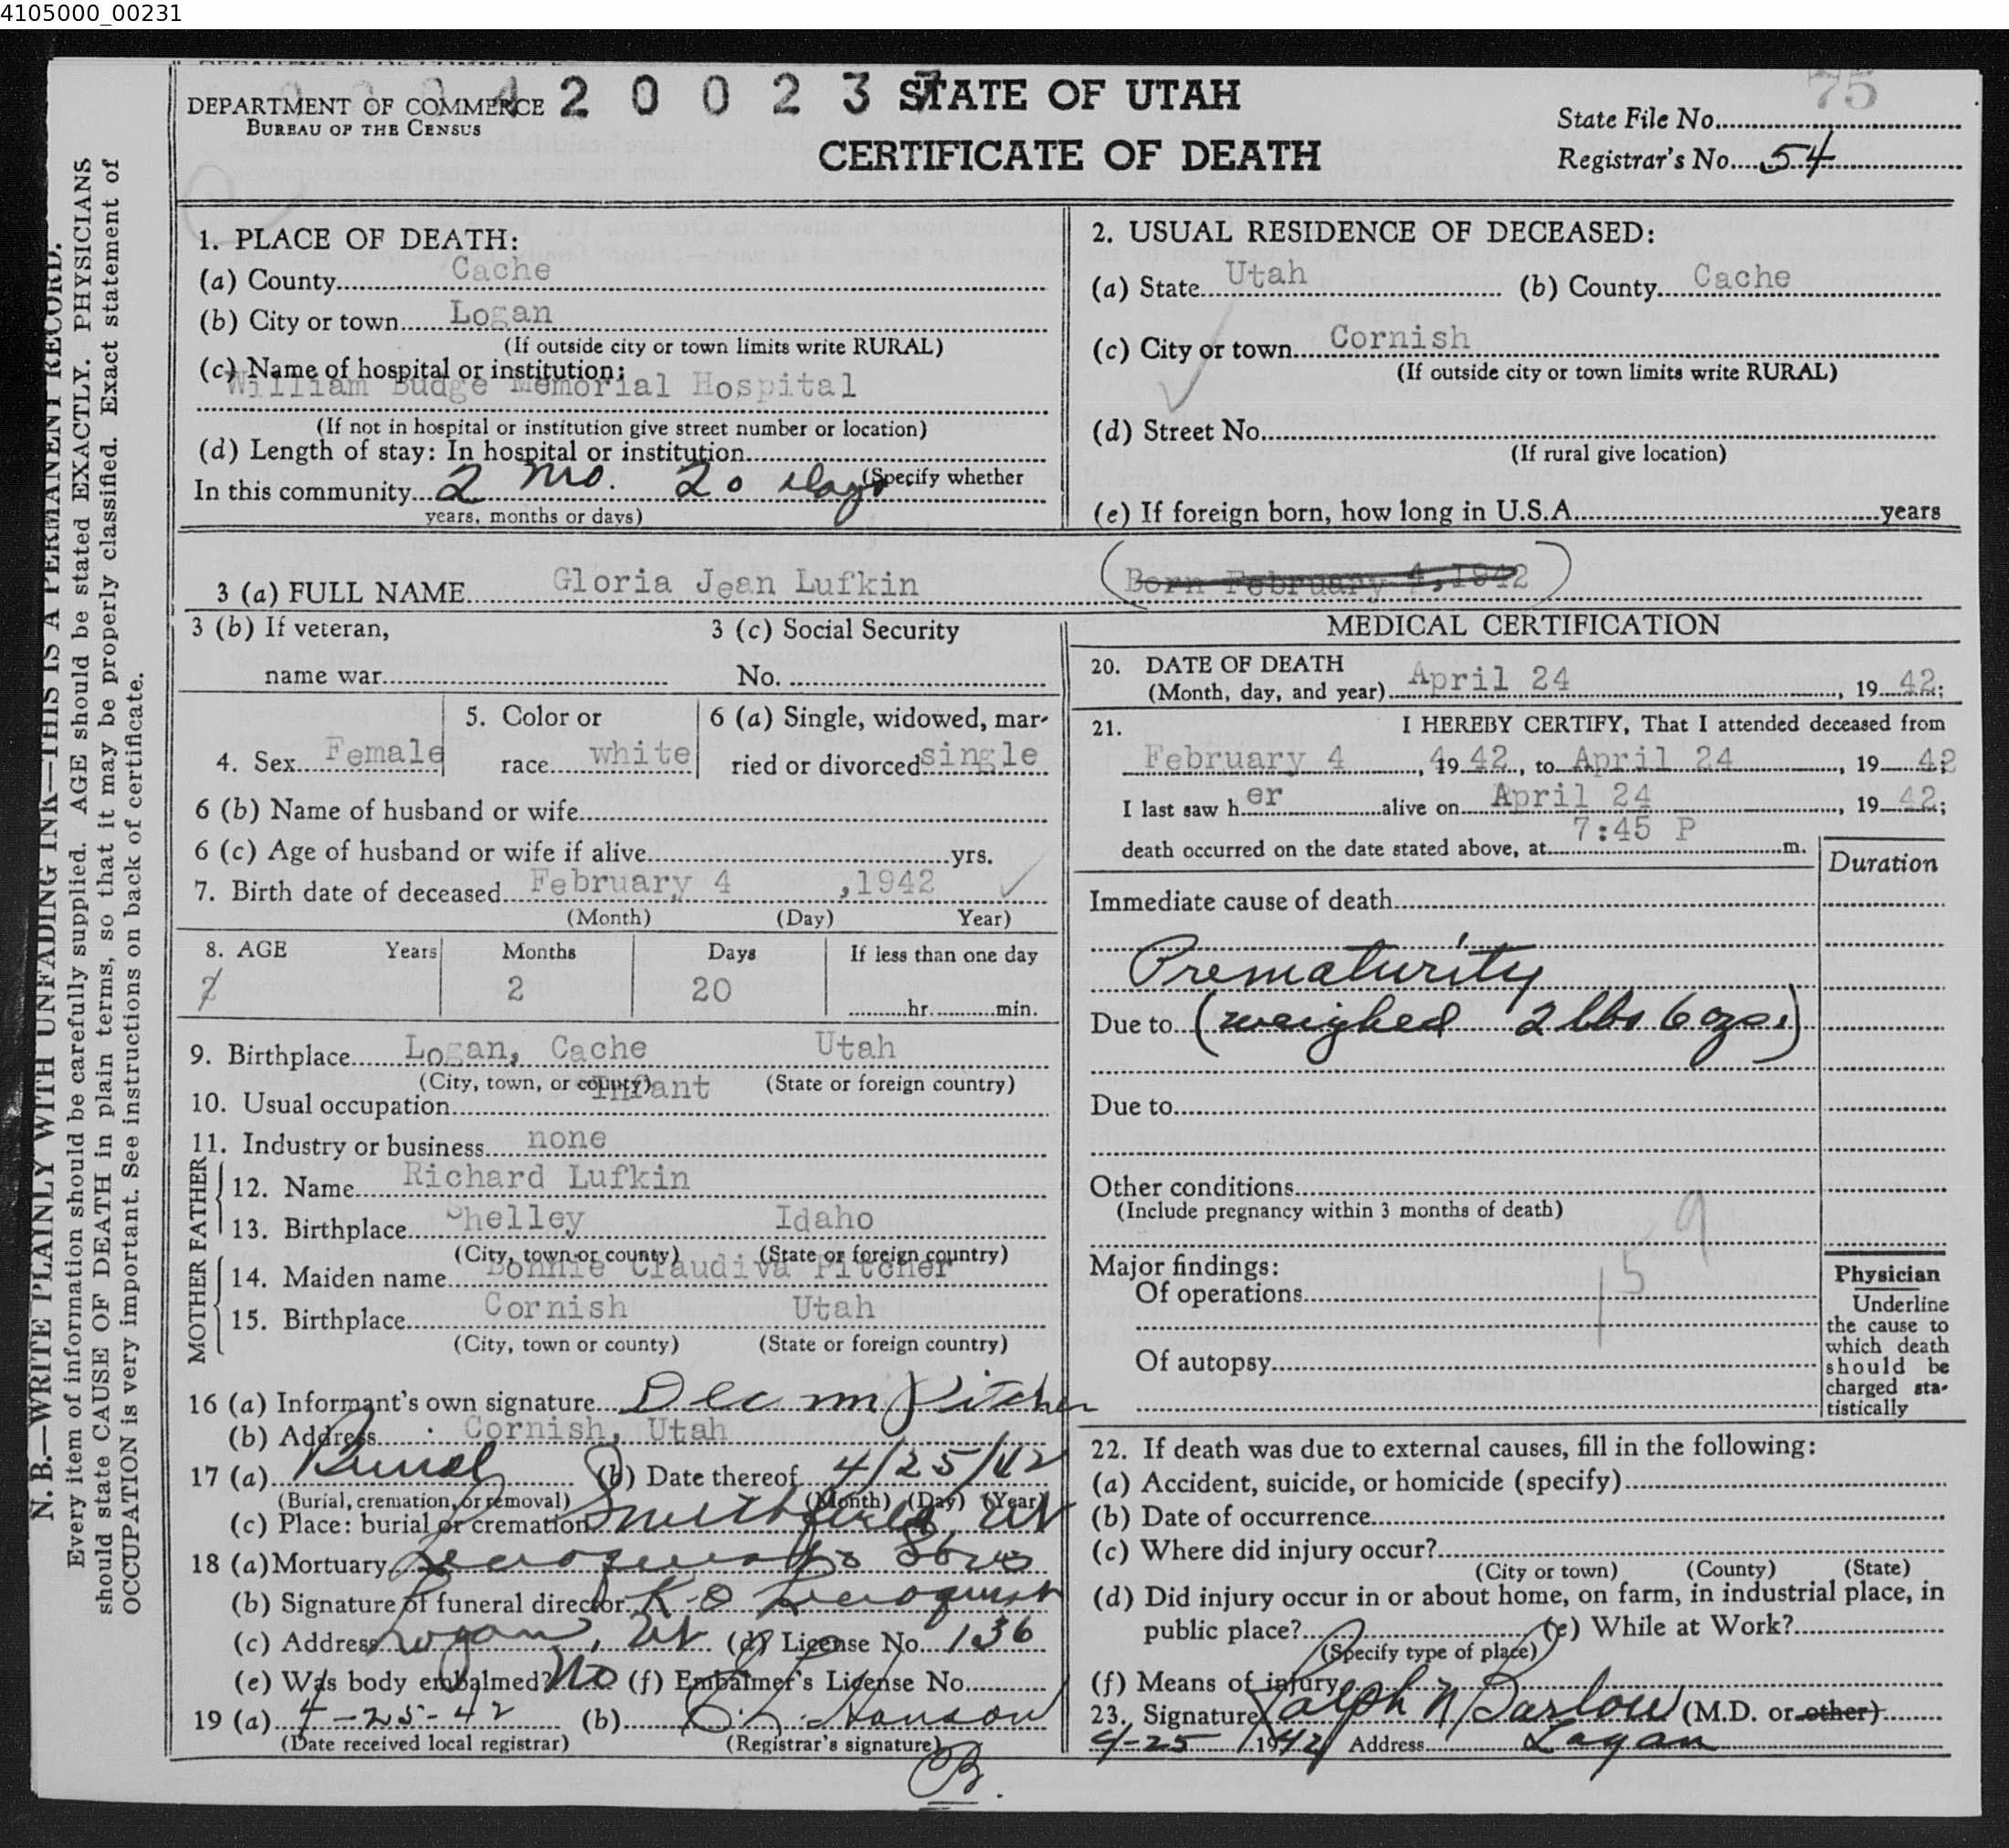 4105000_00231
DEPARTMENT OF COMMERCE
BUREAU OF THE CENSUS
4 2 0 0 2 3
STATE OF UTAH
CERTIFICATE OF DEATH
75
State File No.
Registrar's No. 54
N. B.—WRITE PLAINLY WITH UNFADING INK—THIS IS A PERMANENT RECORD.
Every item of information should be carefully supplied. AGE should be stated EXACTLY. PHYSICIANS
should state CAUSE OF DEATH in plain terms, so that it may be properly classified. Exact statement of
OCCUPATION is very important. See instructions on back of certificate.
1. PLACE OF DEATH:
(a) County Cache
(b) City or town Logan
(If outside city or town limits write RURAL)
(c) Name of hospital or institution:
William Budge Memorial Hospital
(If not in hospital or institution give street number or location)
(d) Length of stay: In hospital or institution
(Specify whether
In this community 2 mo. 20 days
years, months or days)
2. USUAL RESIDENCE OF DECEASED:
(a) State Utah (b) County Cache
(c) City or town Cornish
(If outside city or town limits write RURAL)
(d) Street No.
(If rural give location)
(e) If foreign born, how long in U.S.A. years
3 (a) FULL NAME Gloria Jean Lufkin (Born February 4, 1942)
3 (b) If veteran, name war
3 (c) Social Security No.
4. Sex Female
5. Color or race white
6 (a) Single, widowed, married or divorced single
6 (b) Name of husband or wife
6 (c) Age of husband or wife if alive yrs.
7. Birth date of deceased February 4 ,1942
(Month) (Day) Year)
8. AGE Years Months Days If less than one day
2 2 20 hr. min.
9. Birthplace Logan, Cache Utah
(City, town, or county) (State or foreign country)
10. Usual occupation Infant
11. Industry or business none
FATHER
12. Name Richard Lufkin
13. Birthplace Shelley Idaho
(City, town or county) (State or foreign country)
MOTHER
14. Maiden name Bonnie Claudiva Pitcher
15. Birthplace Cornish Utah
(City, town or county) (State or foreign country)
16 (a) Informant's own signature Pitcher
(b) Address Cornish, Utah
17 (a) Burial (b) Date thereof 4/25/42
(Burial, cremation, or removal) (Month) (Day) (Year)
(c) Place: burial or cremation Smithfield, Ut
18 (a) Mortuary
(b) Signature of funeral director
(c) Address Logan, Ut (d) License No. 136
(e) Was body embalmed? No (f) Embalmer's License No.
19 (a) 4-25-42 (b) Hanson
(Date received local registrar) (Registrar's signature)
B.
MEDICAL CERTIFICATION
20. DATE OF DEATH
(Month, day, and year) April 24, 19 42;
21. I HEREBY CERTIFY, That I attended deceased from
February 4, 19 42, to April 24, 19 42
I last saw h er alive on April 24, 19 42;
death occurred on the date stated above, at 7:45 P m.
Duration
Immediate cause of death
Prematurity
Due to (weighed 2 lbs 6 ozs.)
Due to
Other conditions
(Include pregnancy within 3 months of death)
159
Major findings:
Of operations
Of autopsy
Physician
Underline
the cause to
which death
should be
charged sta-
tistically
22. If death was due to external causes, fill in the following:
(a) Accident, suicide, or homicide (specify)
(b) Date of occurrence
(c) Where did injury occur?
(City or town) (County) (State)
(d) Did injury occur in or about home, on farm, in industrial place, in
public place? (e) While at Work?
(Specify type of place)
(f) Means of injury
23. Signature Ralph N Barlow (M.D. or other)
4-25 1942 Address Logan